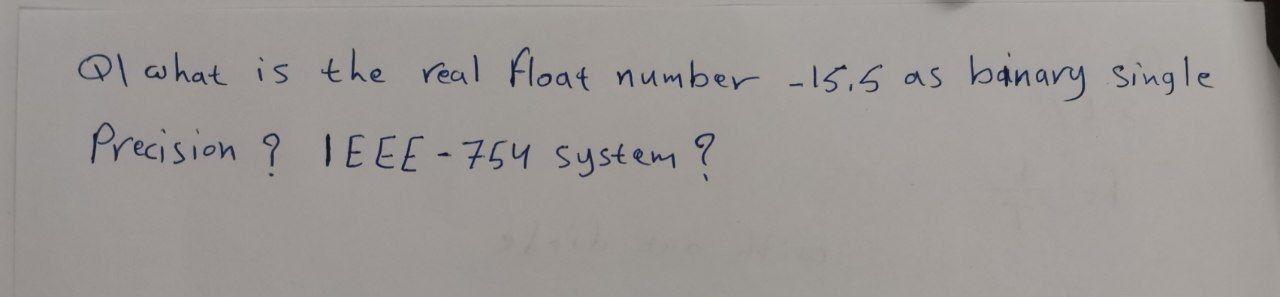 Q1 what is the real float number -15.5 as binary single
Precision ? IEEE-754 system ?